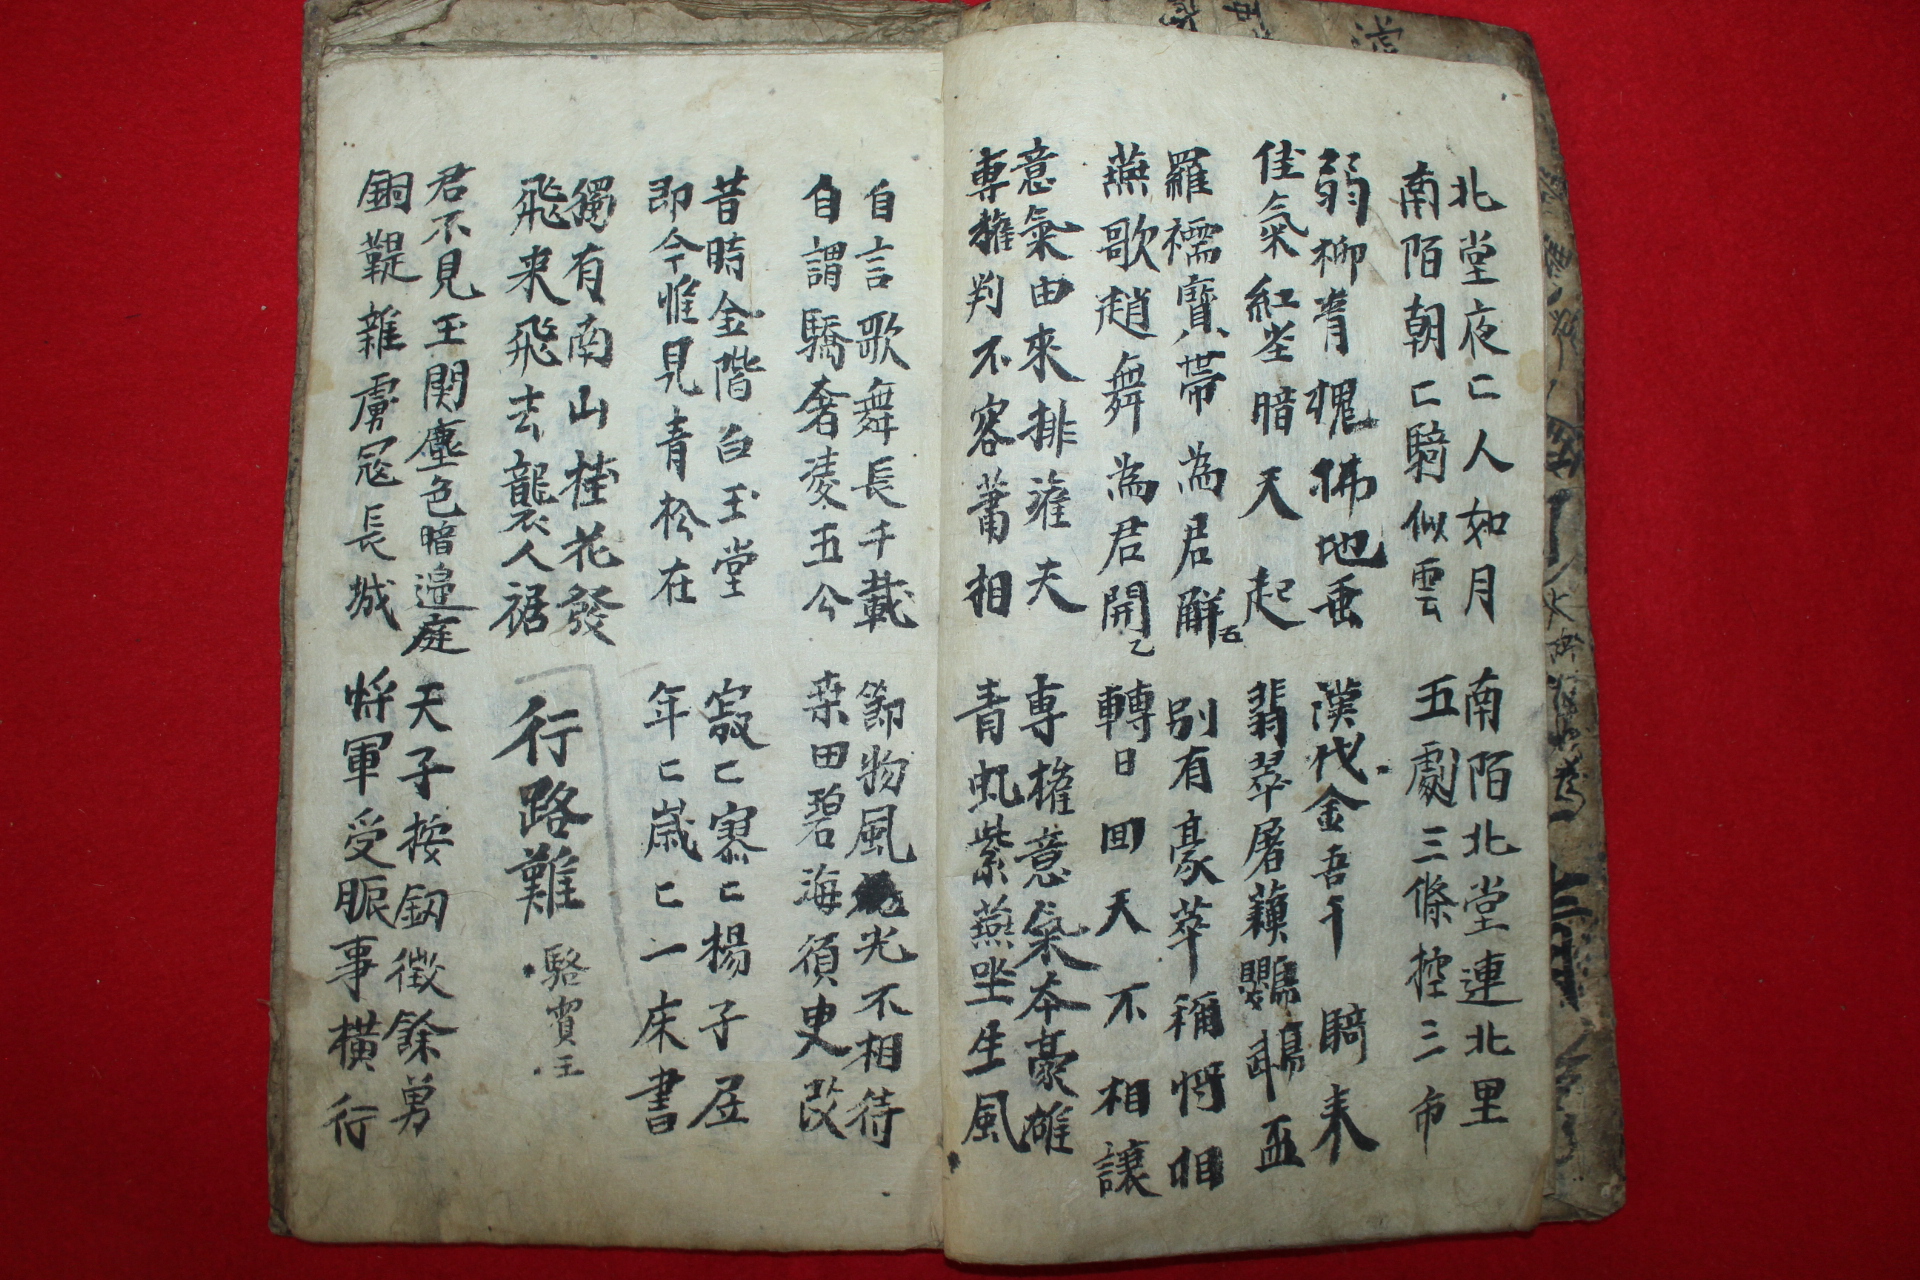 北堂夜〻人如月
南陌朝〻騎似雲
南陌北堂連北里
五劇三條控三市
弱柳青槐拂地垂
佳氣紅尘暗天起
漢代金吾千騎来
翡翠屠蘓鸚鵡盃
羅襦寶帶為君觧
燕歌趙舞為君開
別有豪華稱將相
轉日回天不相讓
意氣由來排灌夫
專權判不容蕭相
專權意氣本豪雄
青虬紫燕坐生風
自言歌舞長千載
自謂驕奢凌五公
節物風光不相待
桒田碧海須臾改
昔時金階白玉堂
即今惟見青松在
寂〻寥〻楊子居
年〻歲〻一床書
獨有南山桂花發
飛来飛去襲人裾
行路難 駱賓王
君不見玉関塵色暗邉庭
銅鞮雜虜寇長城
天子按釼徵餘勇
將軍受脤事橫行